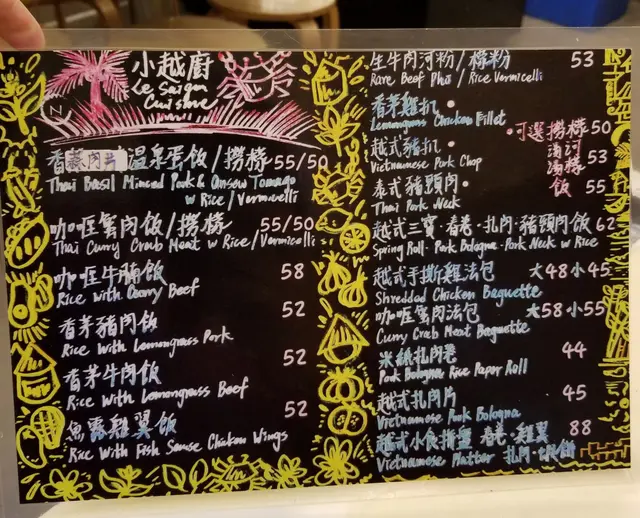 小越廚
Le Saigon
Cuisine
香蔴肉片溫泉蛋飯/撈檬 55/50
Thai Basil Minced Pork & Onsew Tomago
w Rice/Vermicelli
咖喱蟹肉飯/撈檬 55/50
Thai Curry Crab Meat w Rice/Vermicelli
咖喱牛腩飯 58
Rice with Curry Beef
香茅豬肉飯 52
Rice with Lemongrass Pork
香茅牛肉飯 52
Rice with Lemongrass Beef
魚露雞翼飯 52
Rice with Fish Sauce Chicken Wings
生牛肉河粉/檬粉 53
Rare Beef Pho/Rice Vermicelli
香茅雞扒•
Lemongrass Chicken Fillet
越式豬扒•
Vietnamese Pork Chop
泰式豬頸肉•
Thai Pork Neck
•可選撈檬 50
湯河
湯檬 53
飯 55
越式三寶·春卷·扎肉·豬頸肉飯 62
Spring Roll·Pork Bologna·Pork Neck w Rice
越式手撕雞法包 大48小45
Shredded Chicken Baguette
咖喱蟹肉法包 大58小55
Curry Crab Meat Baguette
米紙扎肉卷 44
Pork Bologna Rice Paper Roll
越式扎肉片 45
Vietnamese Pork Bologna
越式小食拼盤 春卷·雞翼 88
Vietnamese Platter 扎肉·蝦餅